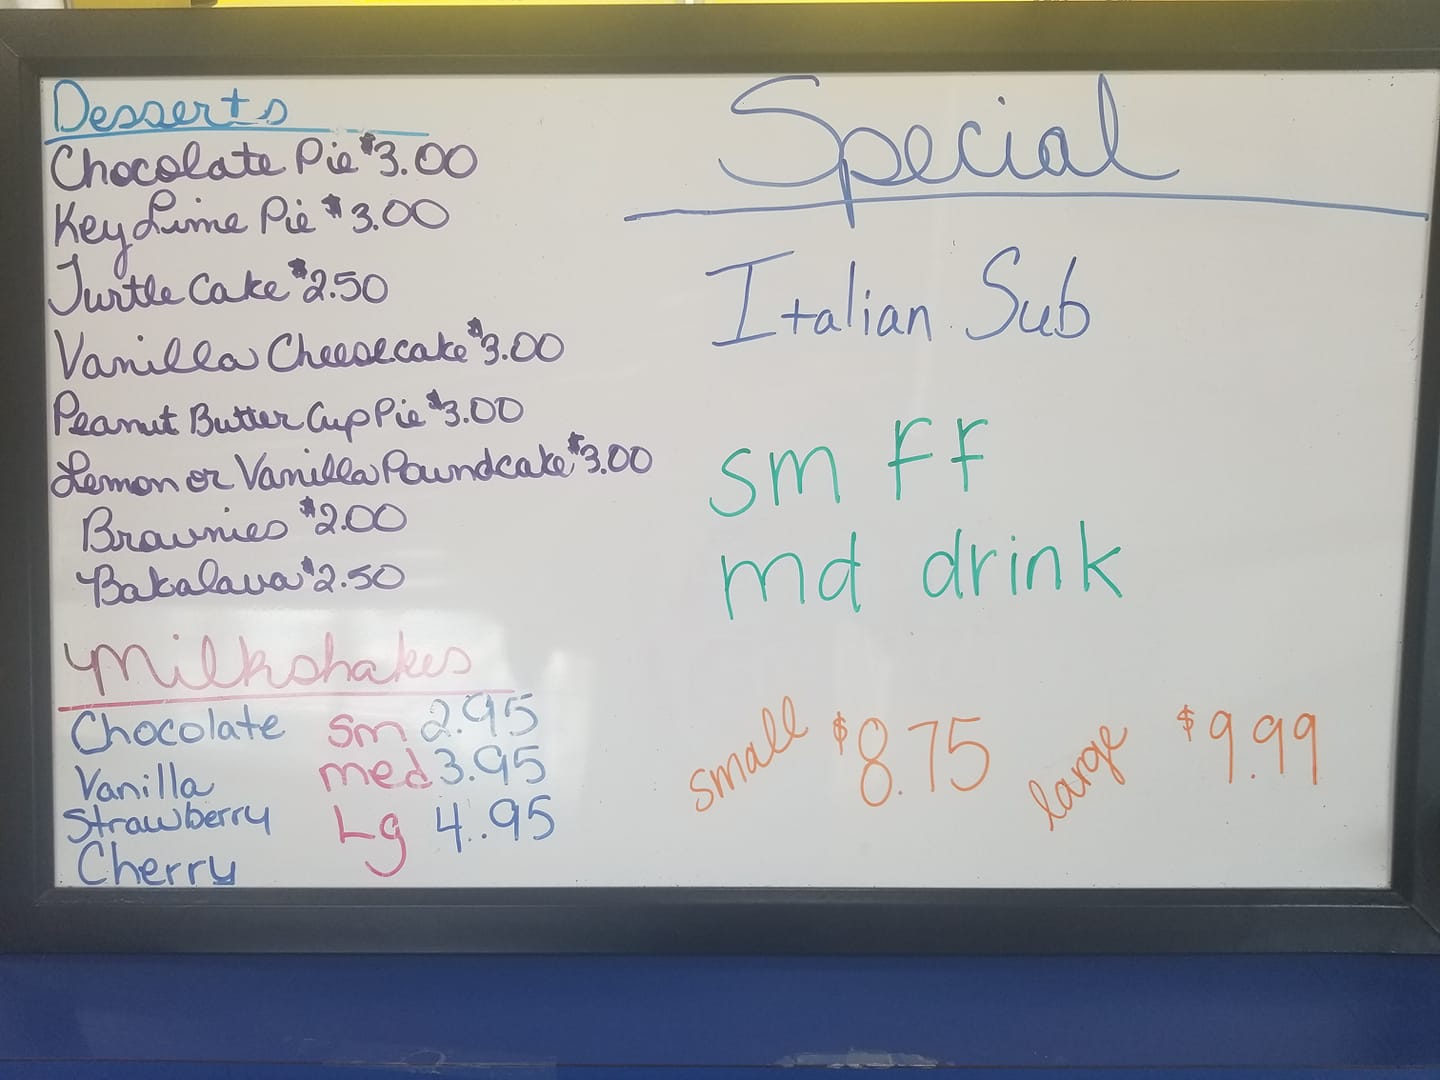 Desserts
Chocolate Pie $3.00
Key Lime Pie $3.00
Turtle Cake $2.50
Vanilla Cheesecake $3.00
Peanut Butter Cup Pie $3.00
Lemon or Vanilla Poundcake $3.00
Brownies $2.00
Bakalava $2.50
Milkshakes
Chocolate sm 2.95
Vanilla med 3.95
Strawberry Lg 4.95
Cherry
Special
Italian Sub
sm FF
md drink
small $8.75 large $9.99